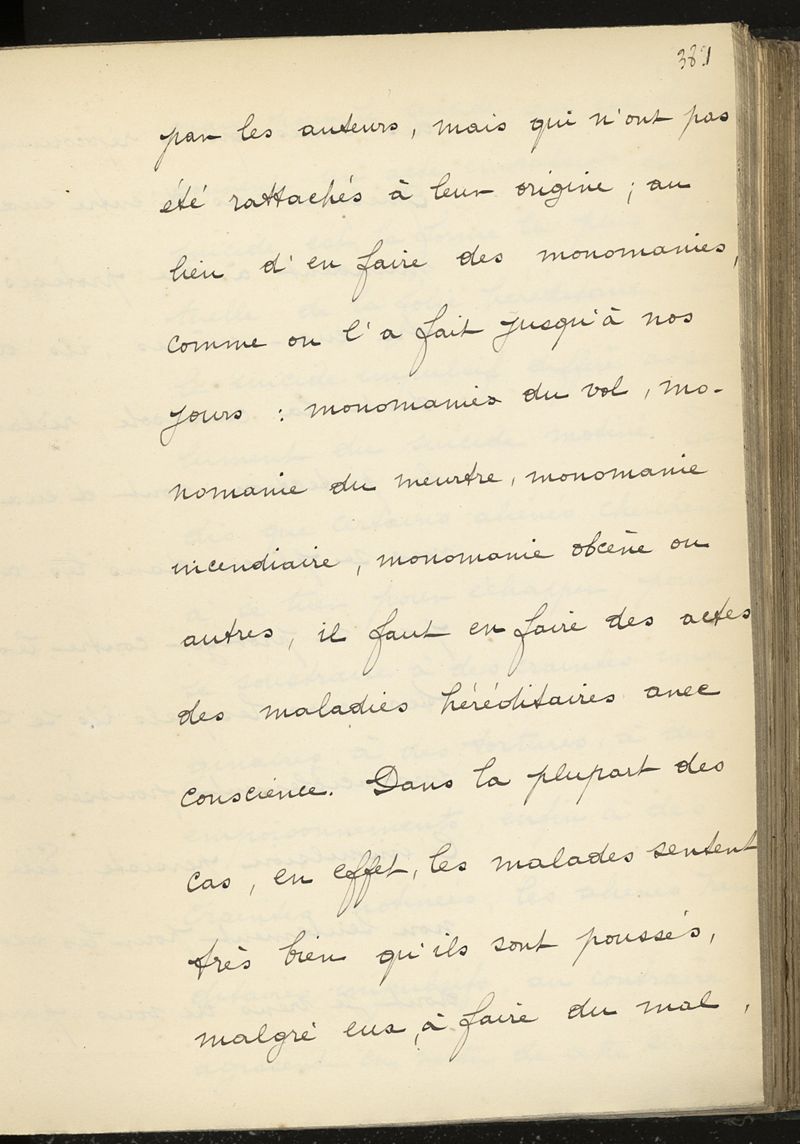 381
par les auteurs, mais qui n'ont pas
été rattachés à leur origine ; au
lieu d'en faire des monomanies,
comme on l'a fait jusqu'à nos
jours : monomanies du vol, mo-
nomanie du meurtre, monomanie
incendiaire, monomanie obcène ou
autres, il faut en faire des actes
des maladies héréditaires avec
conscience. Dans la plupart des
cas, en effet, les malades sentent
très bien qu'ils sont poussés,
malgré eux, à faire du mal,